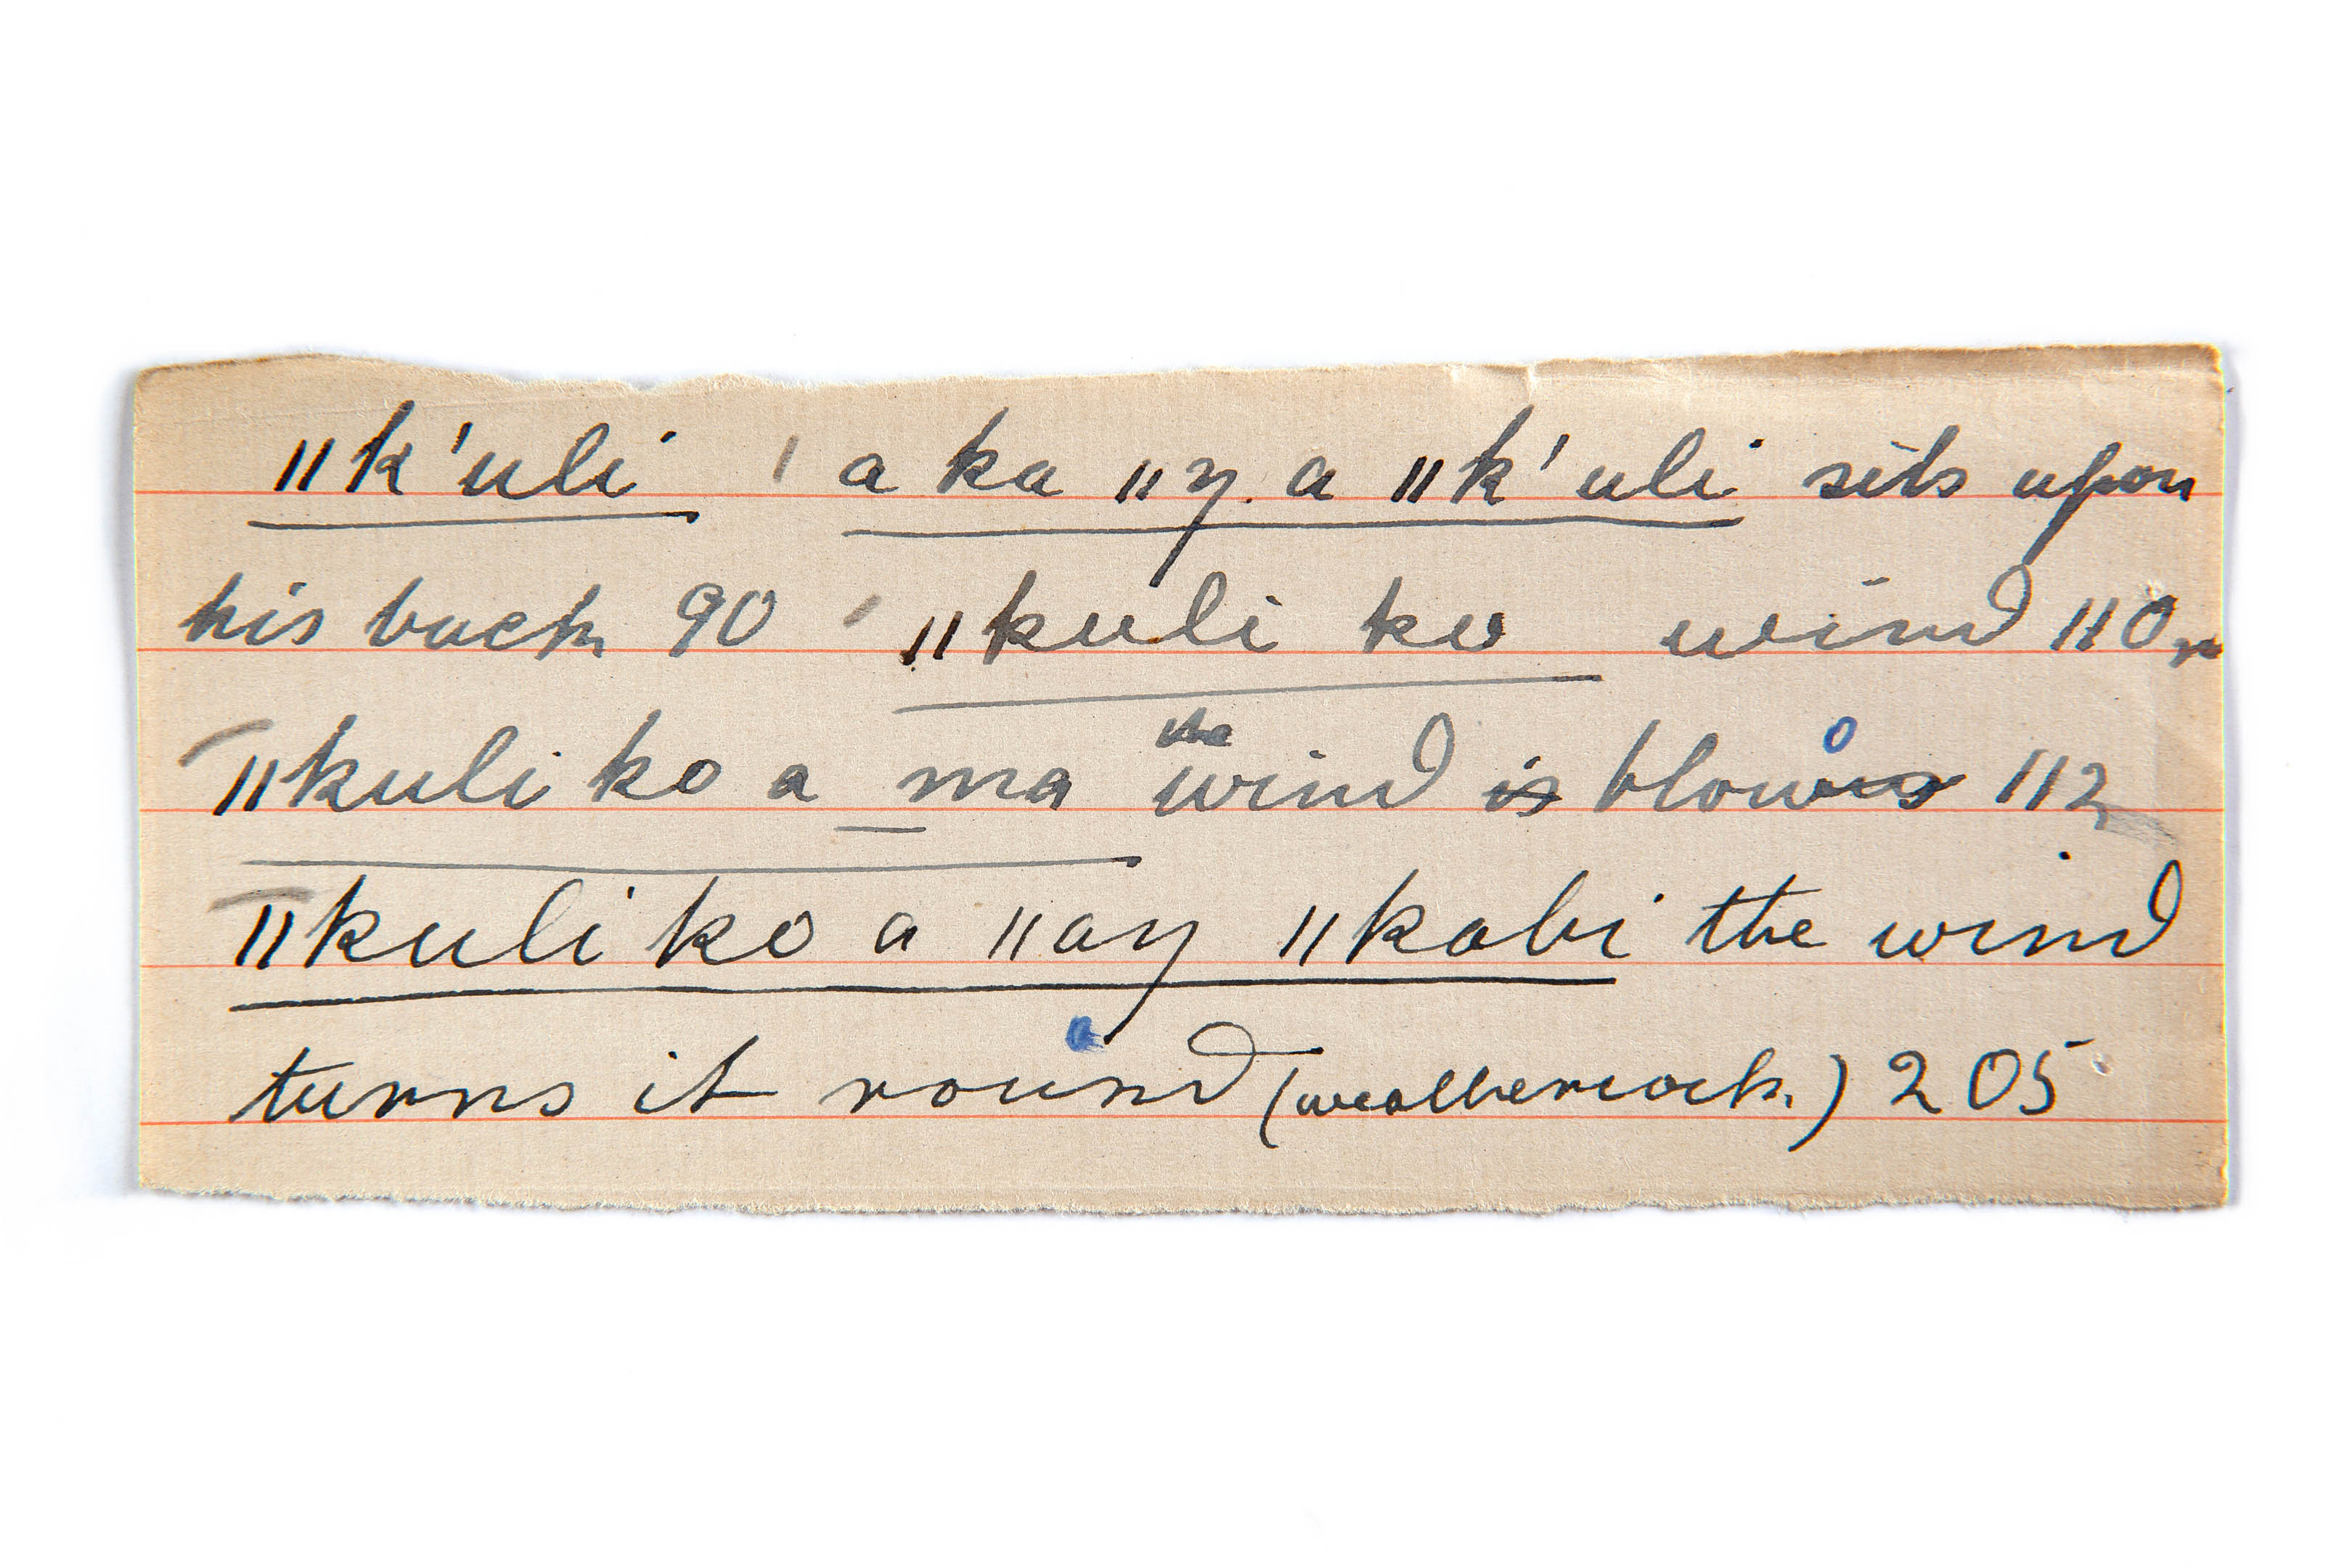 ǁk'uli ' a ka ǁŋ. a ǁk'uli sits upon
his back 90 ' ǁkuli ko wind 110
ǁkuli ko a ma the wind is blows 112
ǁkuli ko a ǁaŋ ǁkabi the wind
turns it round (weathercock.) 205